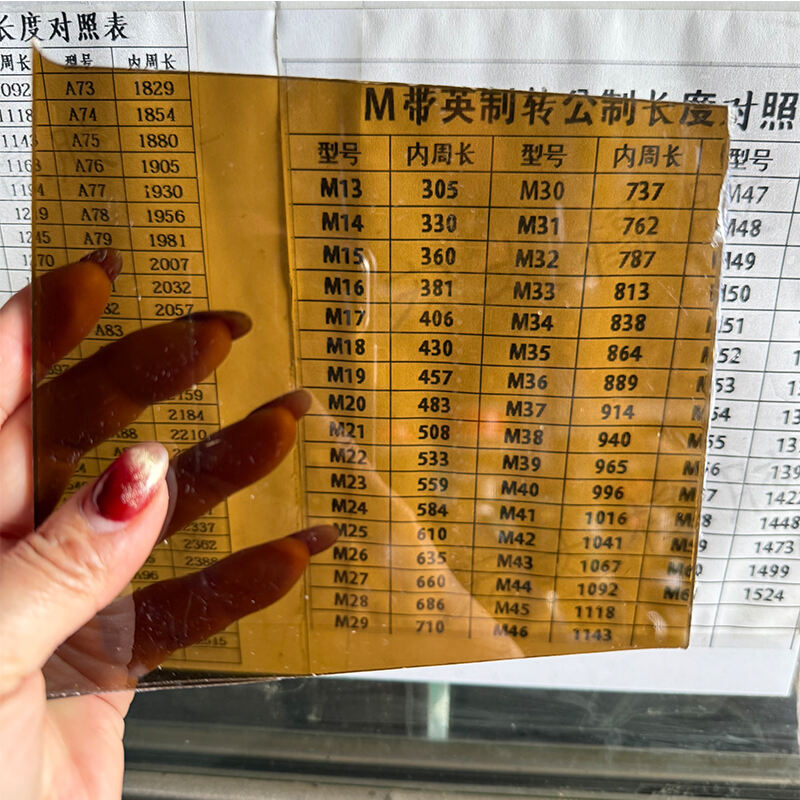 长度对照表
周长 型号 内周长
092 A73 1829
1118 A74 1854
1143 A75 1880
A76 1905
A77 1930
A78 1956
A79 1981
2007
2032
2057
A83
2159
2184
2210
2337
2362
2388
A96
M带英制转公制长度对照
型号 内周长 型号 内周长 型号
M13 305 M30 737 M47
M14 330 M31 762 M48
M15 360 M32 787 M49
M16 381 M33 813 50
M17 406 M34 838 51
M18 430 M35 864 52
M19 457 M36 889 53
M20 483 M37 914 54
M21 508 M38 940 55
M22 533 M39 965
M23 559 M40 996
M24 584 M41 1016 1448
M25 610 M42 1041 1473
M26 635 M43 1067 1499
M27 660 M44 1092 1524
M28 686 M45 1118
M29 710 M46 1143